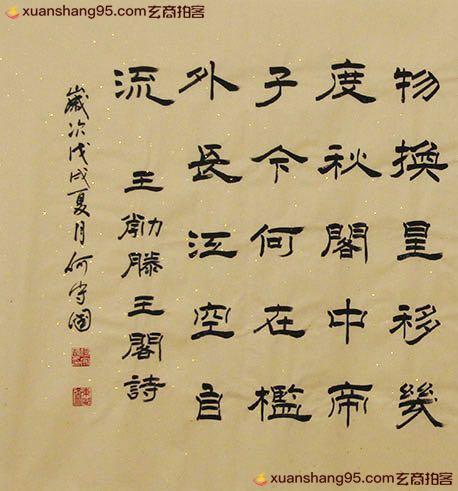 xuanshang95.com玄商拍客
物換星移幾
度秋閣中帝
子今何在檻
外長江空自
流
王勃滕王閣詩
歲次戊戌夏月何守國
xuanshang95.com玄商拍客